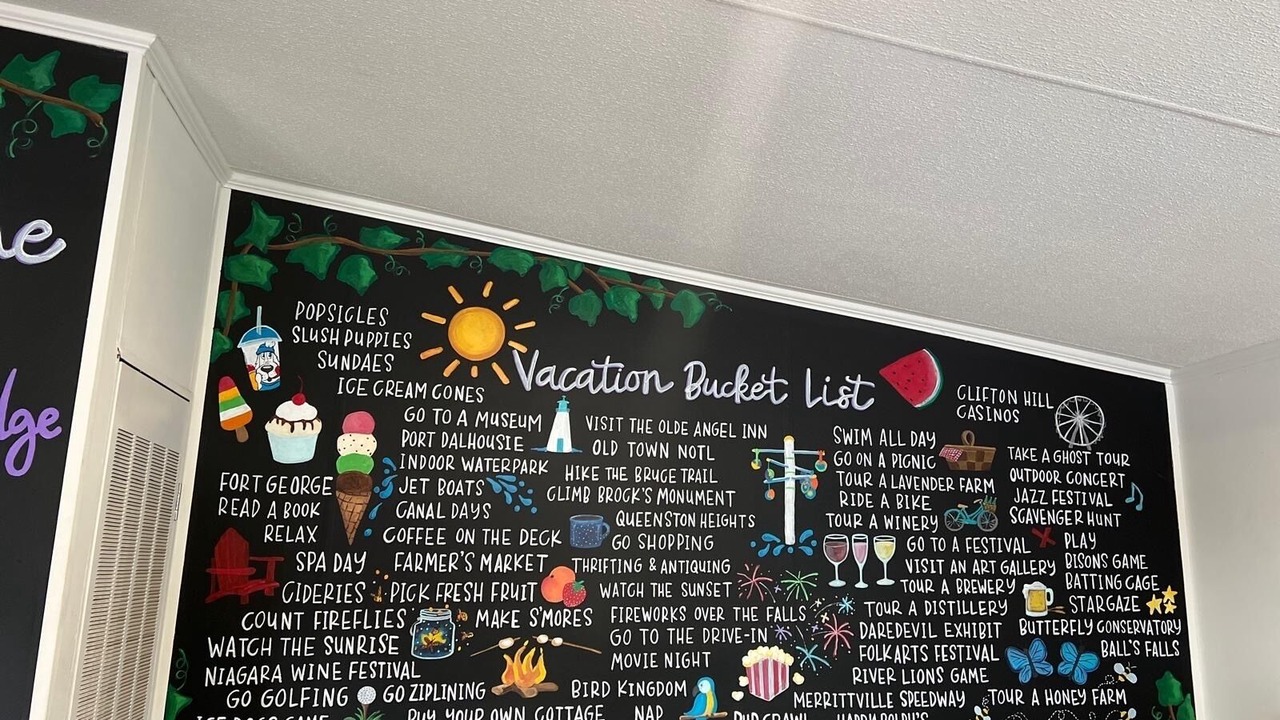 ne
dge
Vacation Bucket List
POPSICLES
SLUSH PUPPIES
SUNDAES
ICE CREAM CONES
GO TO A MUSEUM
PORT DALHOUSIE
INDOOR WATERPARK
JET BOATS
CANAL DAYS
FORT GEORGE
READ A BOOK
RELAX
COFFEE ON THE DECK
VISIT THE OLDE ANGEL INN
OLD TOWN NOTL
HIKE THE BRUCE TRAIL
CLIMB BROCK'S MONUMENT
QUEENSTON HEIGHTS
GO SHOPPING
SPA DAY
FARMER'S MARKET
THRIFTING & ANTIQUING
CIDERIES
PICK FRESH FRUIT
WATCH THE SUNSET
COUNT FIREFLIES
MAKE S'MORES
FIREWORKS OVER THE FALLS
WATCH THE SUNRISE
GO TO THE DRIVE-IN
NIAGARA WINE FESTIVAL
MOVIE NIGHT
GO GOLFING
GO ZIPLINING
BIRD KINGDOM
ICE DOGS GAME
BUY YOUR OWN COTTAGE
NAP
PUB CRAWL
CLIFTON HILL
CASINOS
SWIM ALL DAY
GO ON A PICNIC
TOUR A LAVENDER FARM
RIDE A BIKE
TOUR A WINERY
TAKE A GHOST TOUR
OUTDOOR CONCERT
JAZZ FESTIVAL
SCAVENGER HUNT
GO TO A FESTIVAL
PLAY
VISIT AN ART GALLERY
BISONS GAME
TOUR A BREWERY
BATTING CAGE
TOUR A DISTILLERY
STARGAZE
DAREDEVIL EXHIBIT
BUTTERFLY CONSERVATORY
FOLKARTS FESTIVAL
BALL'S FALLS
RIVER LIONS GAME
MERRITTVILLE SPEEDWAY
TOUR A HONEY FARM
HAPPY ROLPH'S